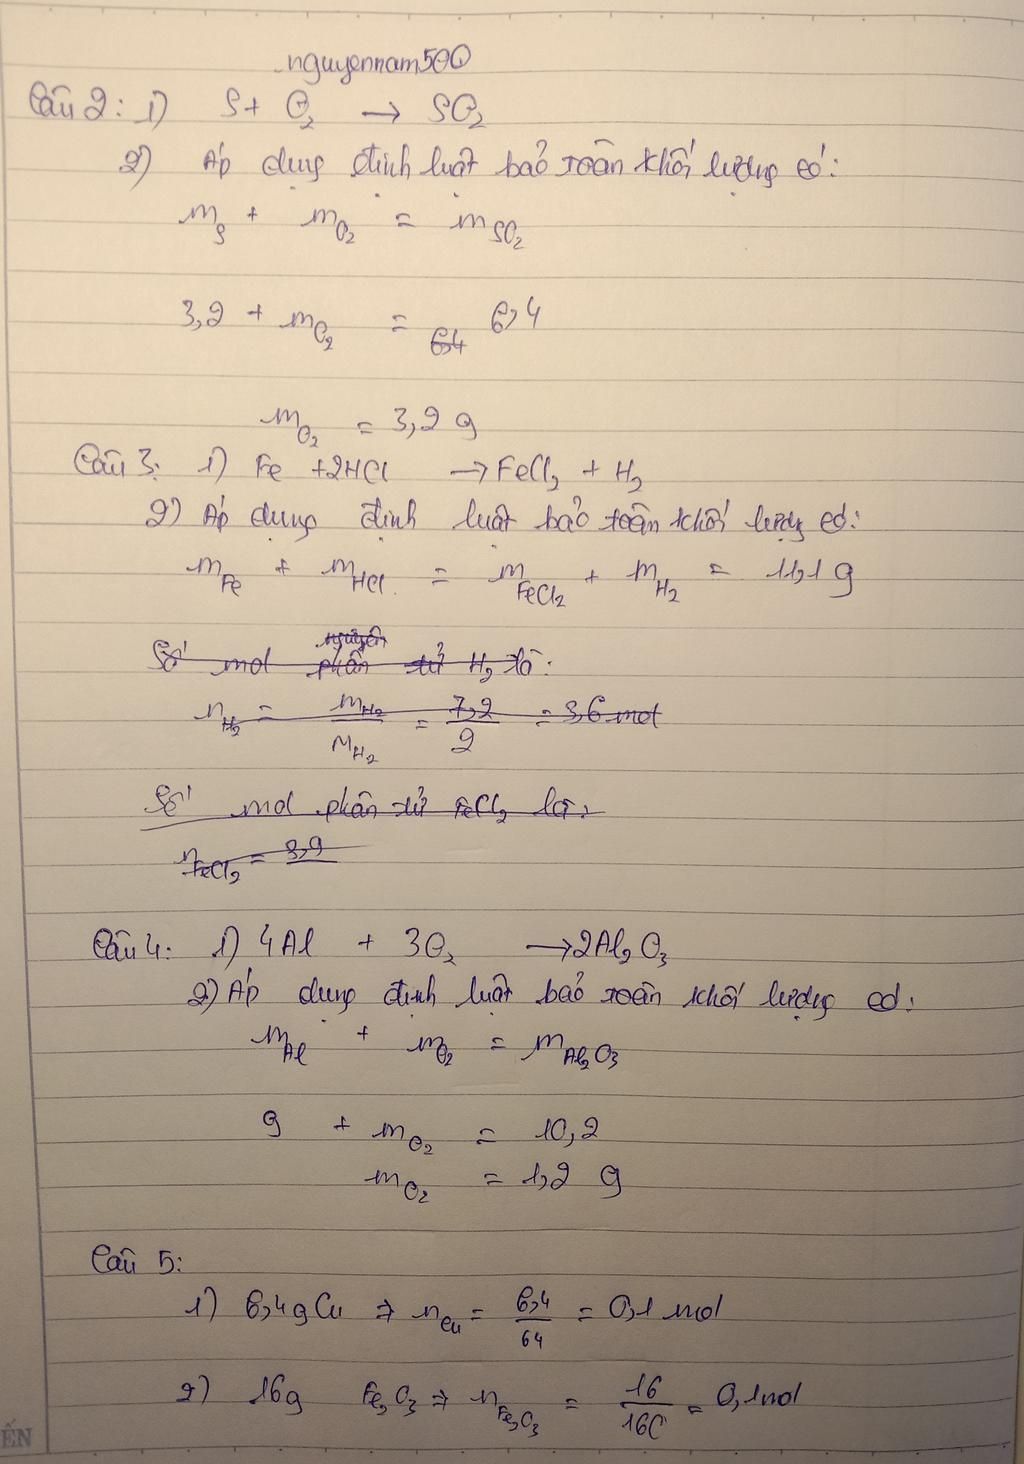 nguyennam500
Câu 2: 1) S + O₂ → SO₂
2) Áp dụng định luật bảo toàn khối lượng có:
m_S + m_O₂ = m_SO₂
3,2 + m_O₂ = 6,4 6,4
m_O₂ = 3,2 g
Câu 3: 1) Fe + 2HCl → FeCl₂ + H₂
2) Áp dụng định luật bảo toàn khối lượng có:
m_Fe + m_HCl = m_FeCl₂ + m_H₂ = 11,1 g
nguyên
Số mol phân tử H₂ là:
n_H₂ = m_H₂/M_H₂ = 7,2/2 = 3,6 mol
Số mol phân tử FeCl₂ là:
n_FeCl₂ = 3,9
Câu 4: 1) 4Al + 3O₂ → 2Al₂O₃
2) Áp dụng định luật bảo toàn khối lượng có:
m_Al + m_O₂ = m_Al₂O₃
9 + m_O₂ = 10,2
m_O₂ = 1,2 g
Câu 5:
1) 6,4g Cu ⇒ n_Cu = 6,4/64 = 0,1 mol
2) 16g Fe₂O₃ ⇒ n_Fe₂O₃ = 16/160 = 0,1 mol
ẾN